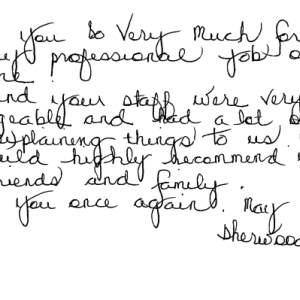 you so very much for
professional job
and your staff were very
geable and had a lot
explaining things to us
uld highly recommend
riends and family.
you once again. May
Sherwood